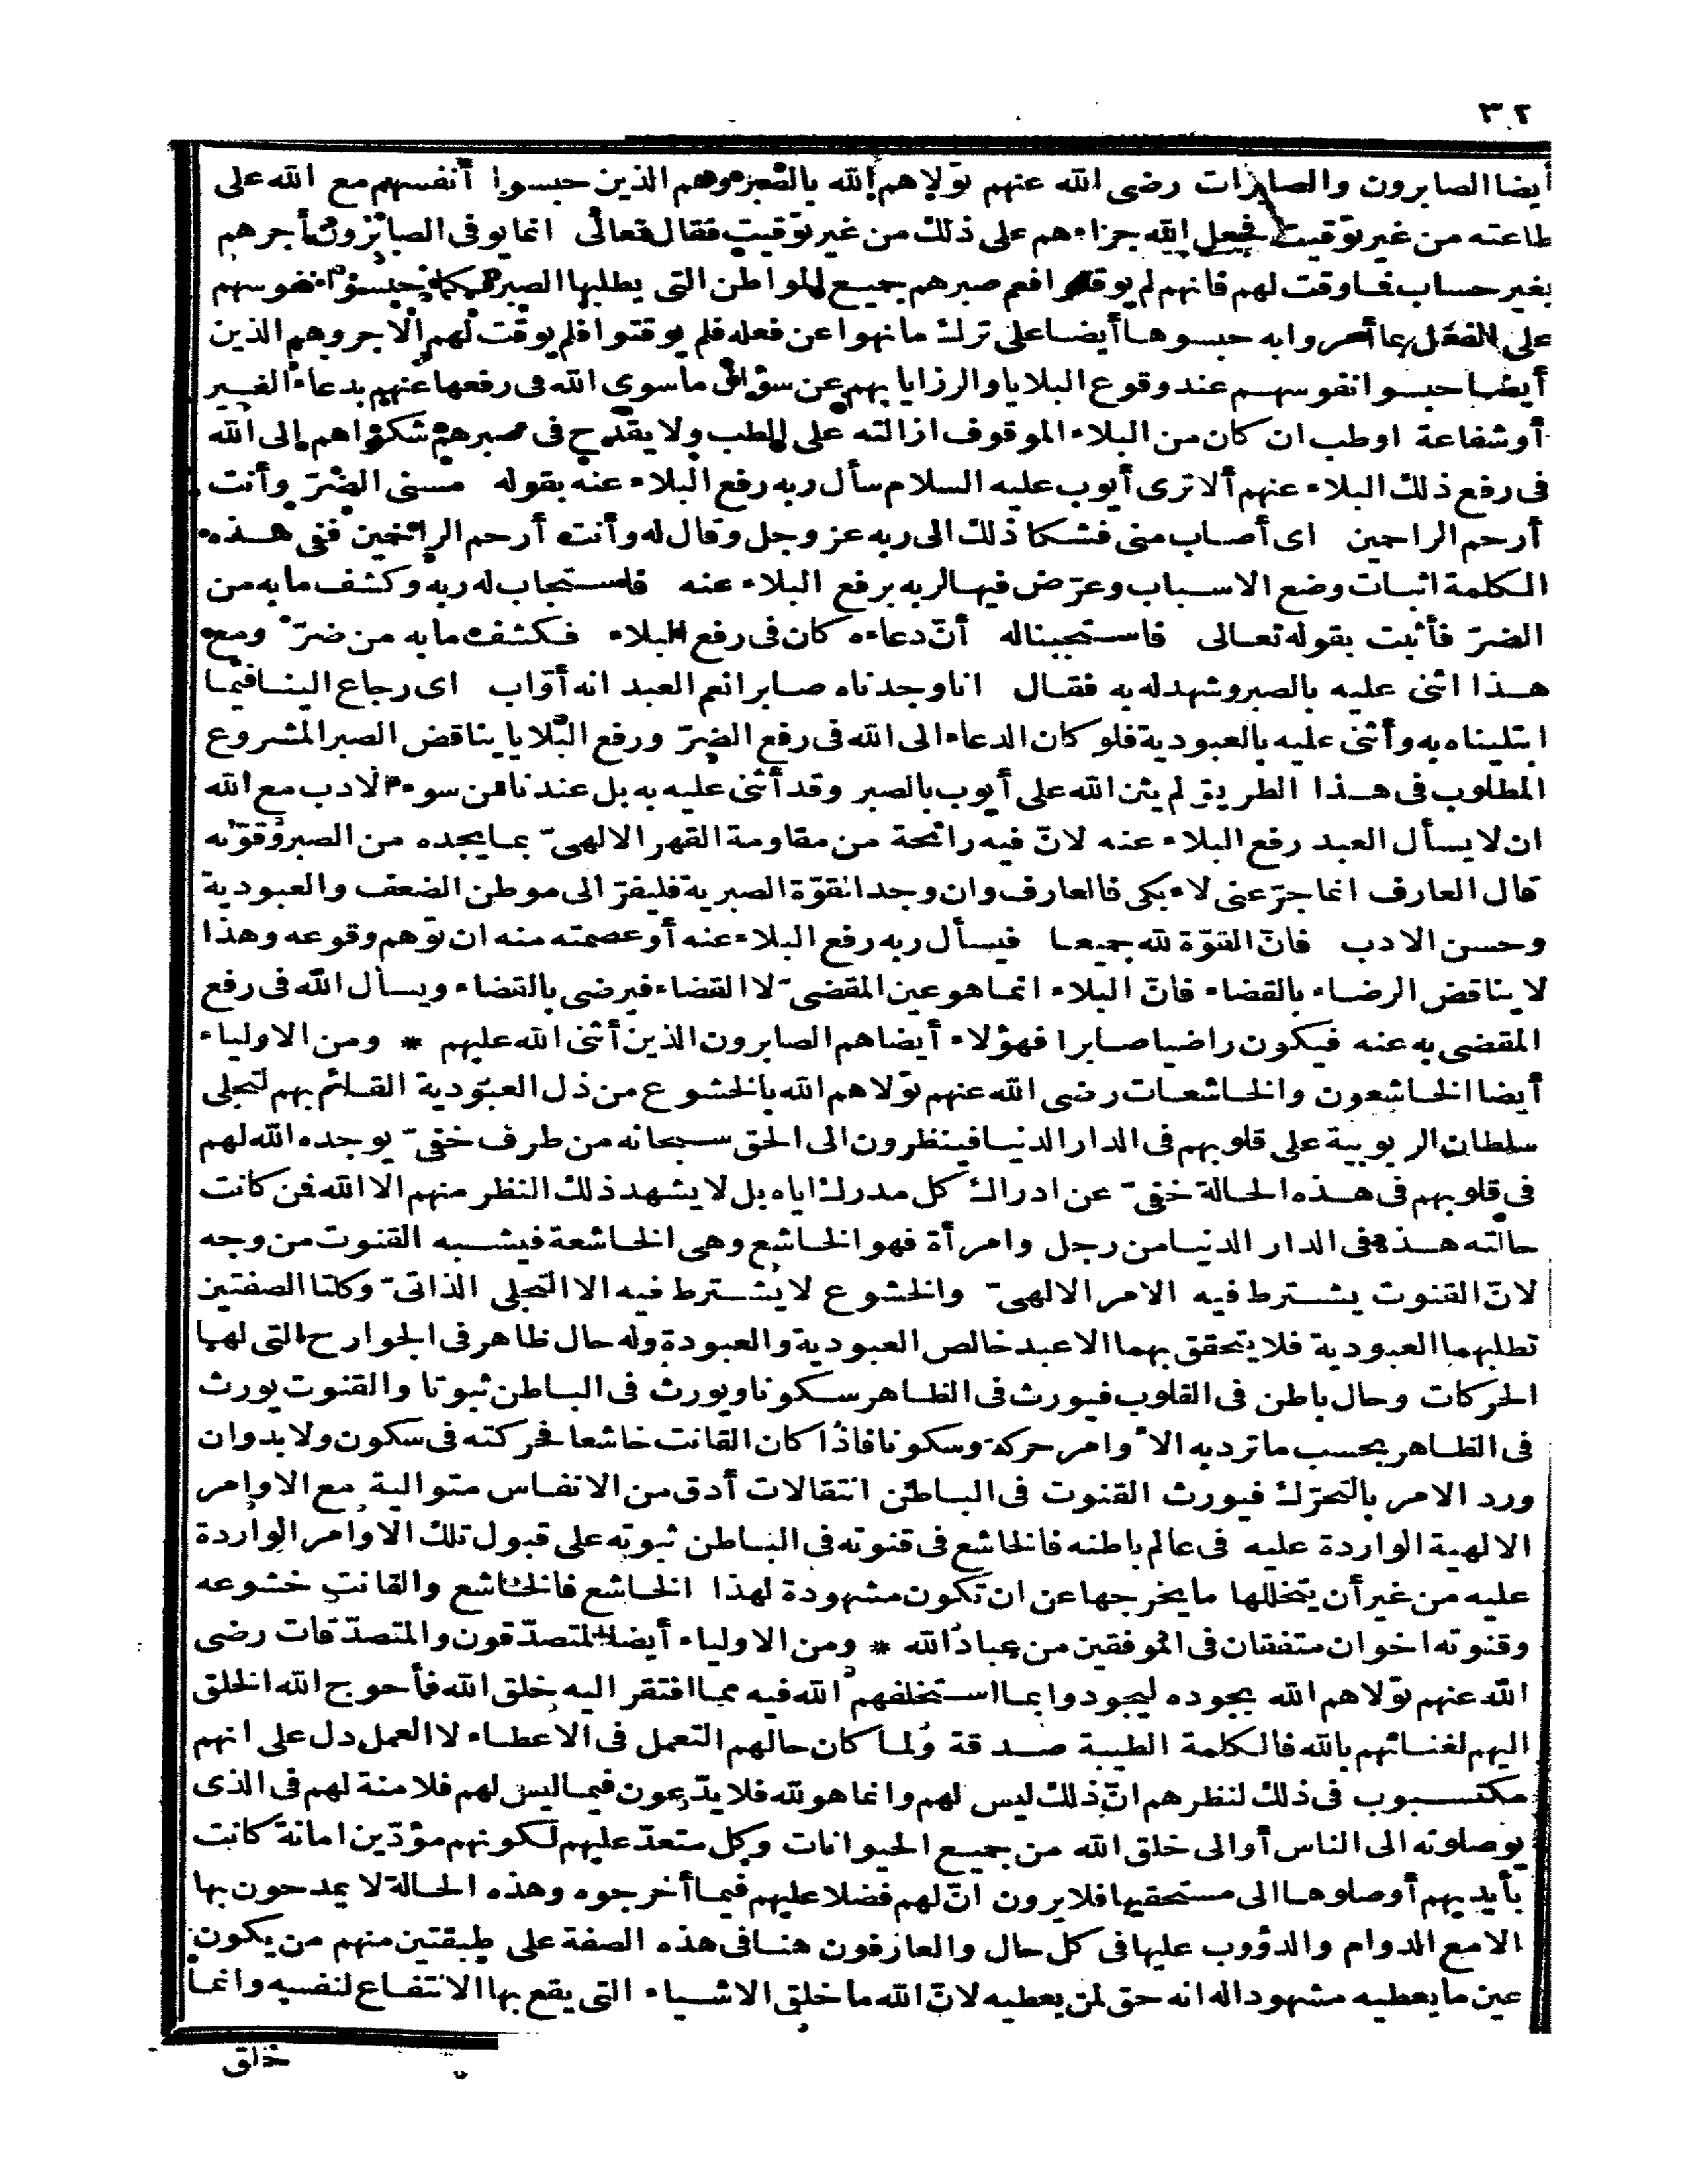 ٣٢
أيضا الصابرون والصابرات رضى الله عنهم تولاهم الله بالصبر وهم الذين حبسوا أنفسهم مع الله على
طاعته من غير توقيت فجعل الله جزاءهم على ذلك من غير توقيت فقال تعالى انما يوفى الصابرون أجرهم
بغير حساب فاوقت لهم فانهم لم يوقتوا فعم صبرهم جميع المواطن التى يطلبها الصبر فكما حبسوا نفوسهم
على الفعل بما أمروا به حبسوها أيضا على ترك ما نهوا عن فعله فلم يوقتوا فلم يوقت لهم الاجر وهم الذين
أيضا حبسوا نفوسهم عند وقوع البلايا والرزايا بهم عن سؤال ما سوى الله فى رفعها عنهم بدعاء الغير
أو شفاعة او طب ان كان من البلاء الموقوف ازالته على الطب ولا يقدح فى صبرهم شكواهم الى الله
فى رفع ذلك البلاء عنهم ألا ترى أيوب عليه السلام سأل ربه رفع البلاء عنه بقوله مسنى الضرّ وأنت
أرحم الراحمين اى أصاب منى فشكا ذلك الى ربه عز وجل وقال له وأنت أرحم الراحمين ففى هذه
الكلمة اثبات وضع الاسباب وعرّض فيها لربه برفع البلاء عنه فاستجاب له ربه وكشف ما به من
الضرّ فأثبت بقوله تعالى فاستجبنا له أنّ دعاءه كان فى رفع البلاء فكشف ما به من ضرّ ومع
هذا اثنى عليه بالصبر وشهد له به فقال انا وجدناه صابرا نعم العبد انه أوّاب اى رجاع الينا فيما
ابتليناه به وأثنى عليه بالعبودية فلو كان الدعاء الى الله فى رفع الضرّ ورفع البلايا يناقض الصبر المشروع
المطلوب فى هذا الطريق لم يثن الله على أيوب بالصبر وقد أثنى عليه به بل عندنا من سوء الادب مع الله
ان لا يسأل العبد رفع البلاء عنه لانّ فيه رائحة من مقاومة القهر الالهىّ بما يجده من الصبر وقوّته
قال العارف انما جوّعنى لا بكى فالعارف وان وجد القوّة الصبرية فليفرّ الى موطن الضعف والعبودية
وحسن الادب فانّ القوّة لله جميعا فيسأل ربه رفع البلاء عنه أو عصمته منه ان توهم وقوعه وهذا
لا يناقض الرضاء بالقضاء فانّ البلاء انما هو عين المقضىّ لا القضاء فيرضى بالقضاء ويسأل الله فى رفع
المقضى به عنه فيكون راضيا صابرا فهؤلاء أيضا هم الصابرون الذين أثنى الله عليهم * ومن الاولياء
أيضا الخاشعون والخاشعات رضى الله عنهم تولاهم الله بالخشوع من ذل العبودية القائم بهم لتجلى
سلطان الربوبية على قلوبهم فى الدار الدنيا فينظرون الى الحق سبحانه من طرف خفىّ يوجده الله لهم
فى قلوبهم فى هذه الحالة خفىّ عن ادراك كل مدرك اياه بل لا يشهد ذلك النظر منهم الا الله فن كانت
حالته هذه فى الدار الدنيا من رجل وامرأة فهو الخاشع وهى الخاشعة فيشبه القنوت من وجه
لانّ القنوت يشترط فيه الامر الالهىّ والخشوع لا يشترط فيه الا التجلى الذاتىّ وكلتا الصفتين
تطلبهما العبودية فلا يتحقق بهما الا عبد خالص العبودية والعبودة وله حال ظاهر فى الجوارح التى لها
الحركات وحال باطن فى القلوب فيورث فى الظاهر سكونا ويورث فى الباطن ثبوتا والقنوت يورث
فى الظاهر بحسب ما ترد به الاوامر حركة وسكونا فاذا كان القانت خاشعا فحركته فى سكون ولا بد وان
ورد الامر بالتحرّك فيورث القنوت فى الباطن انتقالات أدق من الانفاس متوالية مع الاوامر
الالهية الواردة عليه فى عالم باطنه فالخاشع فى قنوته فى الباطن ثبوته على قبول تلك الاوامر الواردة
عليه من غير أن يتخللها ما يخرجها عن ان تكون مشهودة لهذا الخاشع فالخاشع والقانت خشوعه
وقنوته اخوان متفقان فى الموفقين من عباد الله * ومن الاولياء أيضا المتصدّقون والمتصدّقات رضى
الله عنهم تولاهم الله بجوده ليجودوا بما استخلفهم الله فيه مما افتقر اليه خلق الله فأحوج الله الخلق
اليهم لغنائهم بالله فالكلمة الطيبة صدقة ولما كان حالهم التعمل فى الاعطاء لا العمل دل على انهم
مكتسبوب فى ذلك لنظرهم انّ ذلك ليس لهم وانما هو لله فلا يدّعون فيما ليس لهم فلا منة لهم فى الذى
يوصلونه الى الناس أو الى خلق الله من جميع الحيوانات وكل متعدّ عليهم لكونهم مؤدّين امانة كانت
بأيديهم أوصلوها الى مستحقيها فلا يرون انّ لهم فضلا عليهم فيما أخرجوه وهذه الحالة لا يمدحون بها
الا مع الدوام والدؤوب عليها فى كل حال والعارفون هنا فى هذه الصفة على طبقتين منهم من يكون
عين ما يعطيه مشهودا له انه حق لمن يعطيه لانّ الله ما خلق الاشياء التى يقع بها الانتفاع لنفسه وانما
خلق